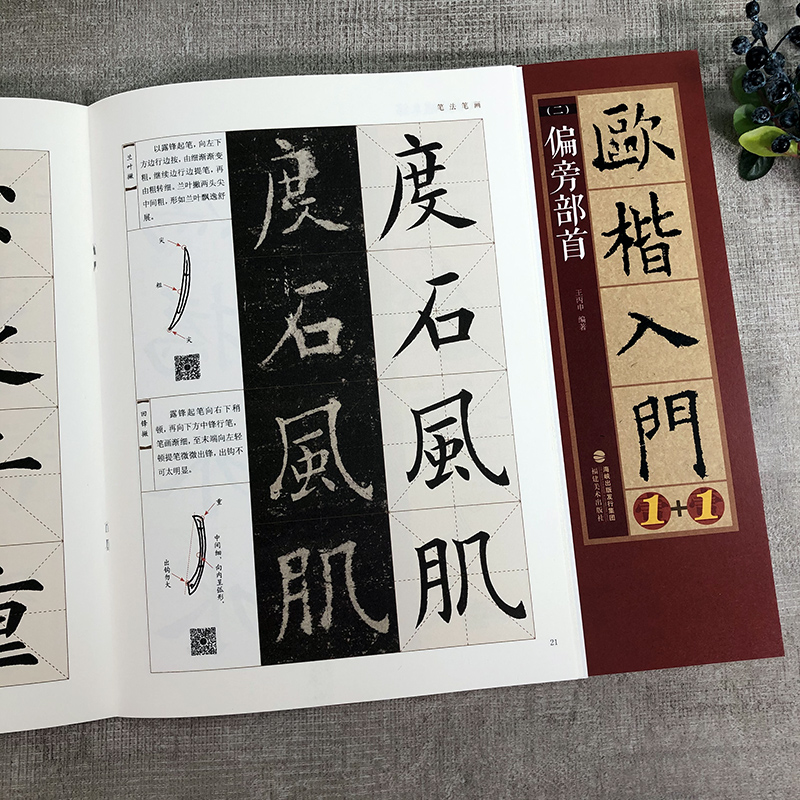 笔法笔画
兰叶撇
以露锋起笔，向左下
方边行边按，由细渐渐变
粗，继续边行边提笔，再
由粗转细。兰叶撇两头尖
中间粗，形如兰叶飘逸舒
展。
尖
粗
尖
回锋撇
露锋起笔向右下稍
顿，再向下方中锋行笔，
笔画渐细，至末端向左轻
顿提笔微微出锋，出钩不
可太明显。
重
中间细，向内呈弧形。
出钩勿大
度
石
風
肌
度
石
風
肌
21
重
歐楷入門
1+1
（二）
偏旁部首
王丙申 编著
海峡出版发行集团
福建美术出版社